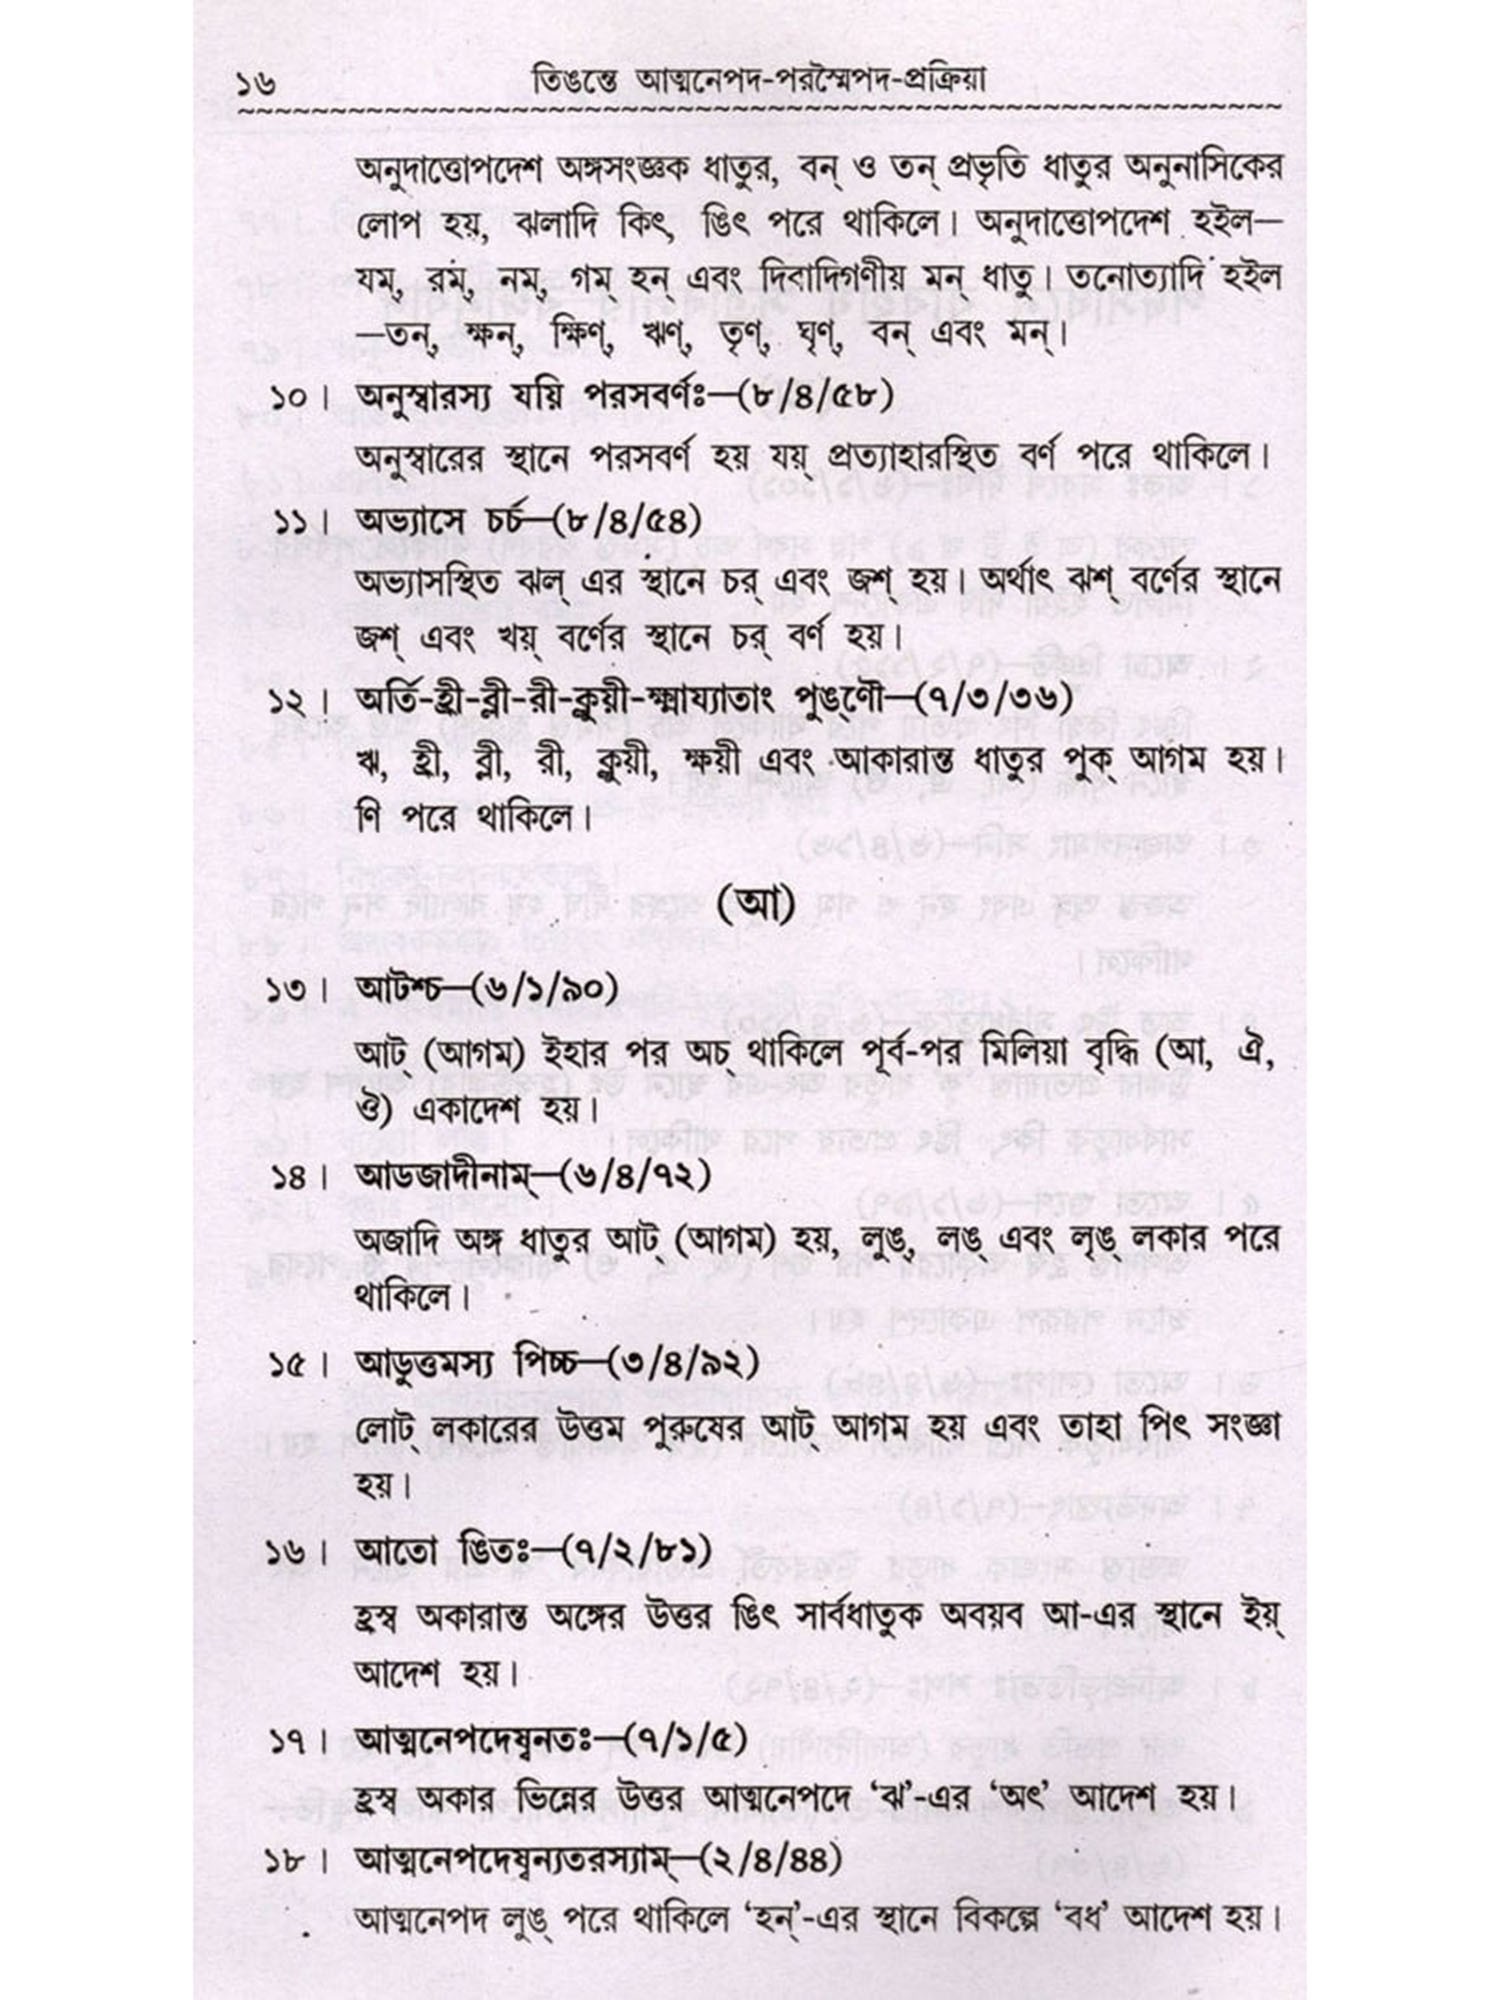 ১৬ তিঙন্তে আত্মনেপদ-পরস্মৈপদ-প্রক্রিয়া
অনুদাত্তোপদেশ অঙ্গসংজ্ঞক ধাতুর, বন্ ও তন্ প্রভৃতি ধাতুর অনুনাসিকের
লোপ হয়, ঝলাদি কিৎ, ঙিৎ পরে থাকিলে। অনুদাত্তোপদেশ হইল—
যম্, রম্, নম্, গম্ হন্ এবং দিবাদিগণীয় মন্ ধাতু। তনোত্যাদি হইল
—তন্, ক্ষন্, ক্ষিণ্, ঋণ্, তৃণ্, ঘৃণ্, বন্ এবং মন্।
১০। অনুস্বারস্য যয়ি পরসবর্ণঃ—(৮/৪/৫৮)
অনুস্বারের স্থানে পরসবর্ণ হয় যয্ প্রত্যাহারস্থিত বর্ণ পরে থাকিলে।
১১। অভ্যাসে চর্চ—(৮/৪/৫৪)
অভ্যাসস্থিত ঝল্ এর স্থানে চর্ এবং জশ্ হয়। অর্থাৎ ঝশ্ বর্ণের স্থানে
জশ্ এবং খয্ বর্ণের স্থানে চর্ বর্ণ হয়।
১২। অর্তি-হ্রী-ব্লী-রী-ক্নুয়ী-ক্ষ্মায্যাতাং পুঙ্ণৌ—(৭/৩/৩৬)
ঋ, হ্রী, ব্লী, রী, ক্নুয়ী, ক্ষয়ী এবং আকারান্ত ধাতুর পুক্ আগম হয়।
ণি পরে থাকিলে।
(আ)
১৩। আটশ্চ—(৬/১/৯০)
আট্ (আগম) ইহার পর অচ্ থাকিলে পূর্ব-পর মিলিয়া বৃদ্ধি (আ, ঐ,
ঔ) একাদেশ হয়।
১৪। আডজাদীনাম্—(৬/৪/৭২)
অজাদি অঙ্গ ধাতুর আট্ (আগম) হয়, লুঙ্, লঙ্ এবং লৃঙ্ লকার পরে
থাকিলে।
১৫। আডুত্তমস্য পিচ্চ—(৩/৪/৯২)
লোট্ লকারের উত্তম পুরুষের আট্ আগম হয় এবং তাহা পিৎ সংজ্ঞা
হয়।
১৬। আতো ঙিতঃ—(৭/২/৮১)
হ্রস্ব অকারান্ত অঙ্গের উত্তর ঙিৎ সার্বধাতুক অবয়ব আ-এর স্থানে ইয্
আদেশ হয়।
১৭। আত্মনেপদেষ্বনতঃ—(৭/১/৫)
হ্রস্ব অকার ভিন্নের উত্তর আত্মনেপদে ‘ঝ’-এর ‘অৎ’ আদেশ হয়।
১৮। আত্মনেপদেষ্বন্যতরস্যাম্—(২/৪/৪৪)
আত্মনেপদ লুঙ্ পরে থাকিলে ‘হন্’-এর স্থানে বিকল্পে ‘বধ’ আদেশ হয়।